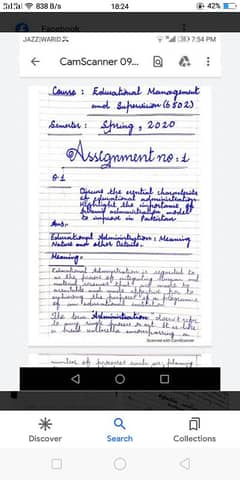 838 B/s
18:24
42%
Facebook
JAZZ|WARID
7:54 PM
CamScanner 09...
Course : Educational Management
and Supervision (6502)
Semester : Spring, 2020
Assignment no: 1
Q.1
Discuss the essential characteristics
of educational administration.
Highlight the importance of
administration model
to improve in Pakistan
Ans:-
Educational Administration: Meaning
Nature and other Details.
Meaning:-
Educational Administration is regarded to
as the process of integrating
material resources that are made to
available and made effective for
achieving the purposes of a programme
of an educational
The term "Administration" doesn't refer
to any single process or act. It is like
a broad umbrella encompassing a
Scanned with CamScanner
number of processes such as, planning
Discover
Search
Collections